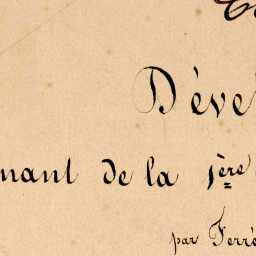 Déve
nant de la 1ère
par Ferré